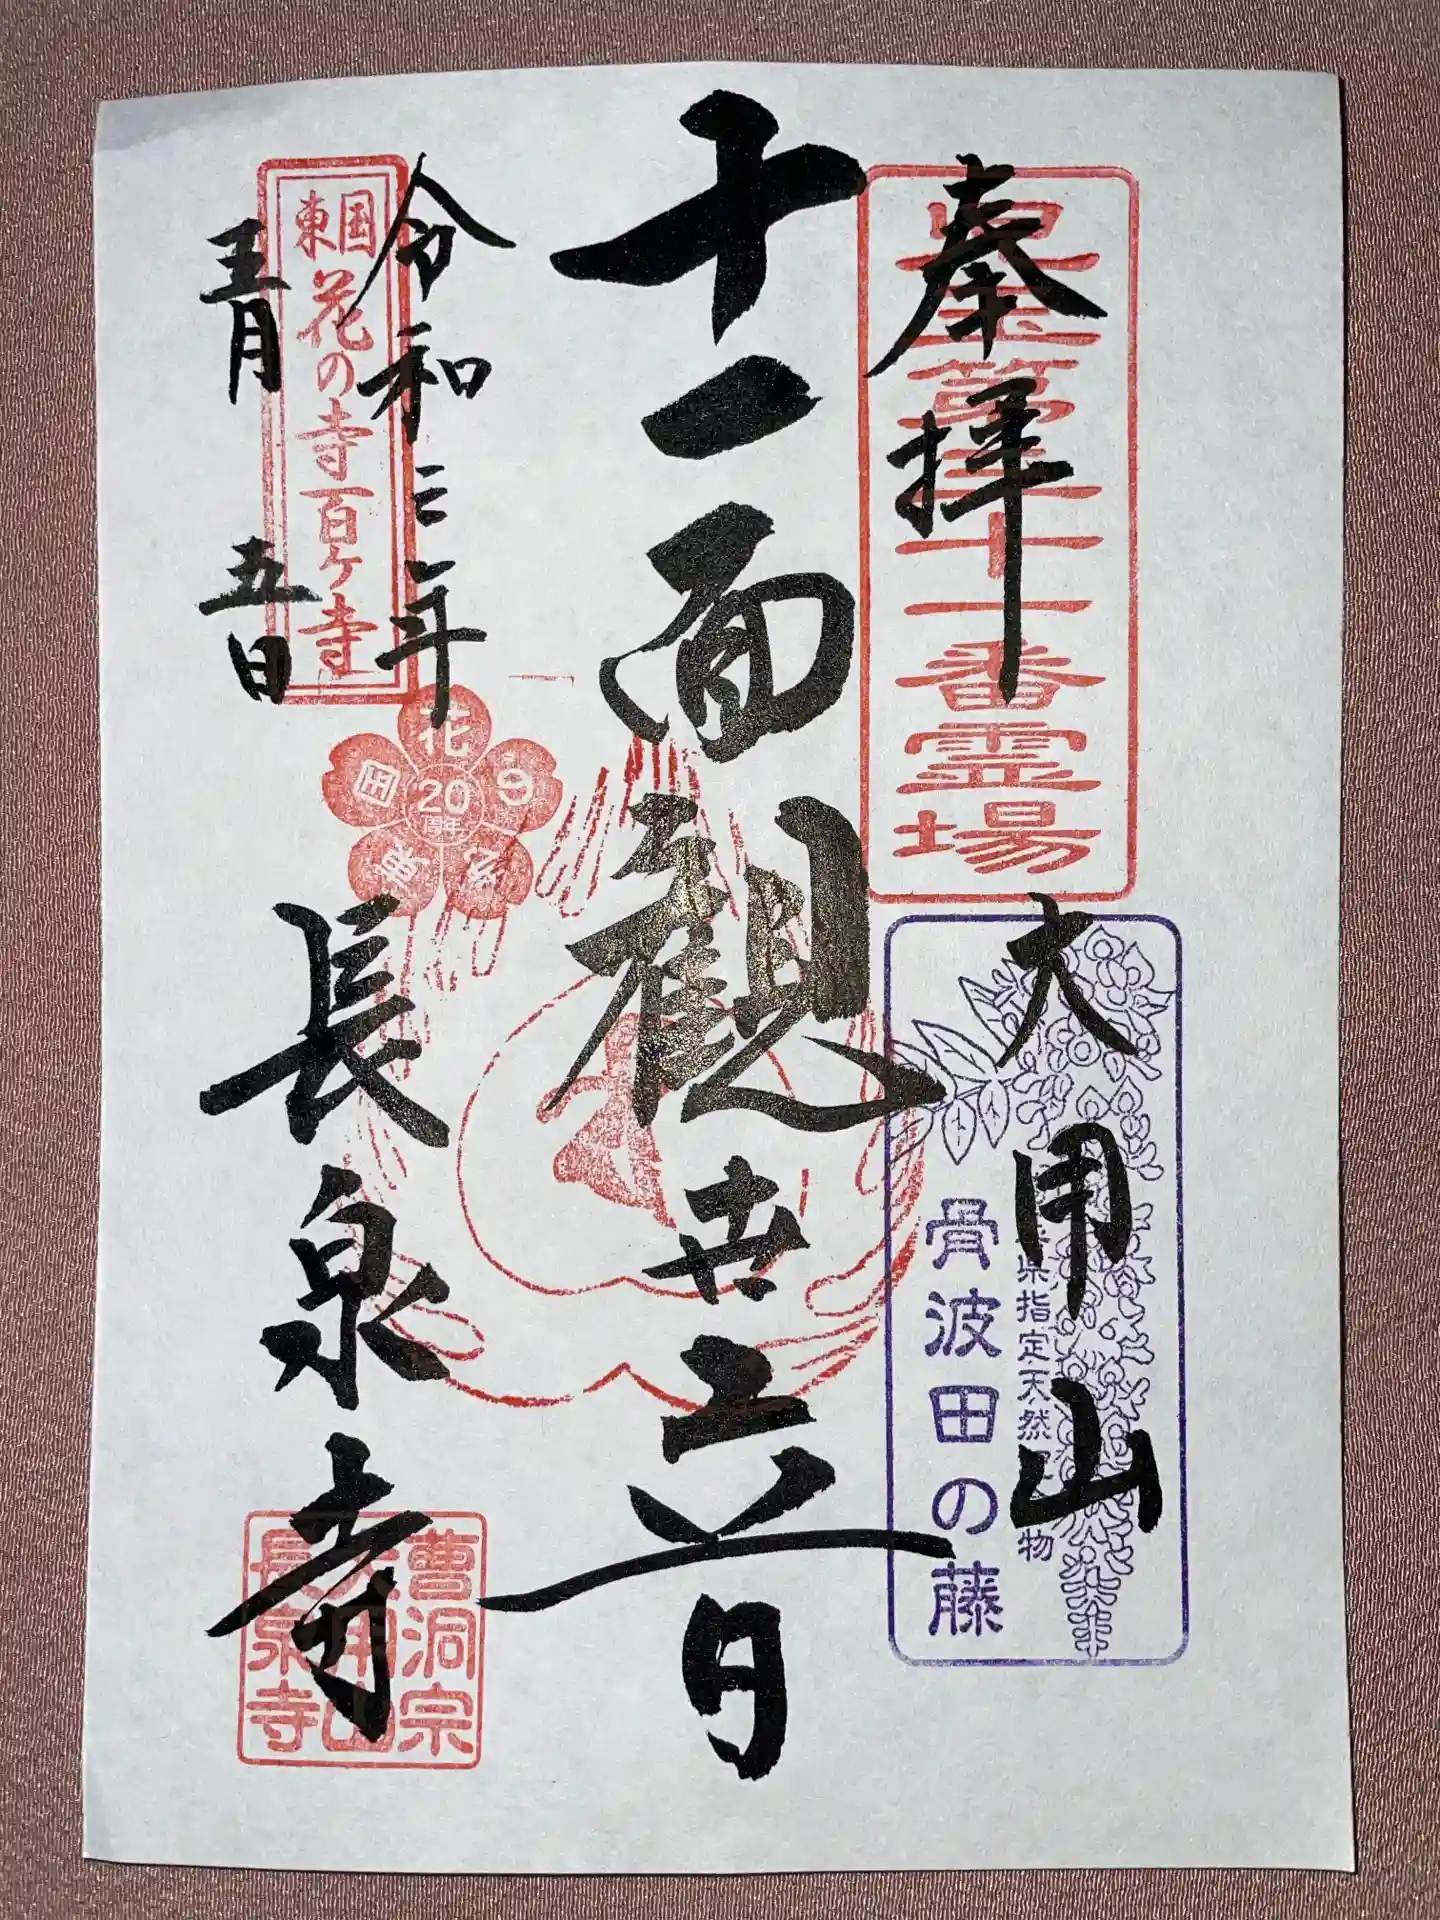 奉拝
児玉第三十一番霊場
大用山
県指定天然
物
骨波田の藤
十一面観世音
令和三年
五月五日
東国
花の寺百ヶ寺
花
の
寺
東
国
20
周年
長泉寺
曹洞宗
大用山
長泉寺